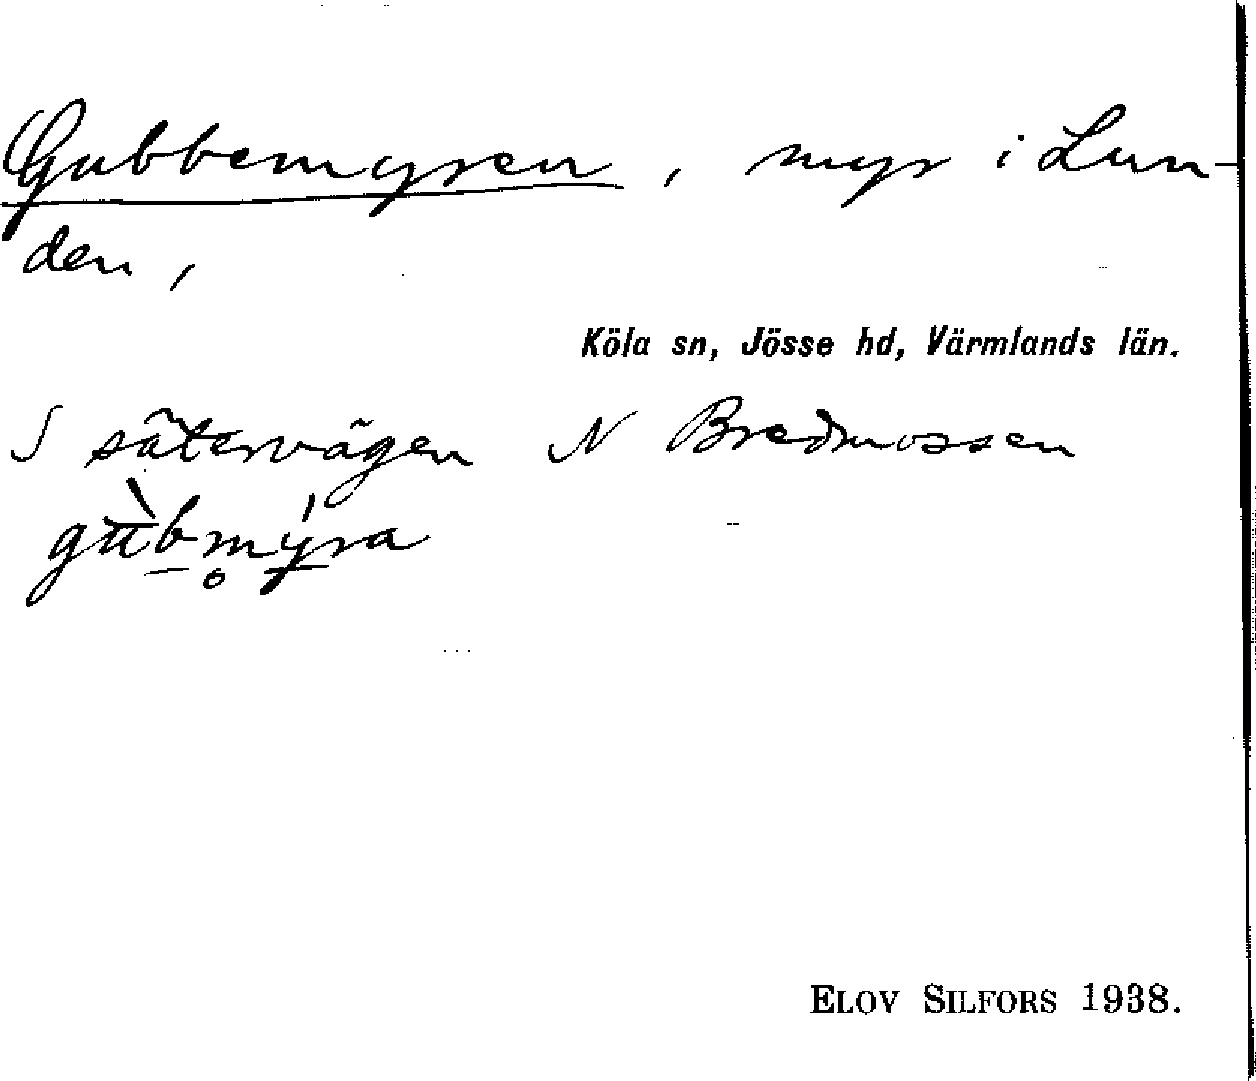 Gubbemyren, myr i Lun-
den,
Köla sn, Jösse hd, Värmlands län.
S sätervägen N Bredmossen
gùbm̥ýra
ELOV SILFORS 1938.